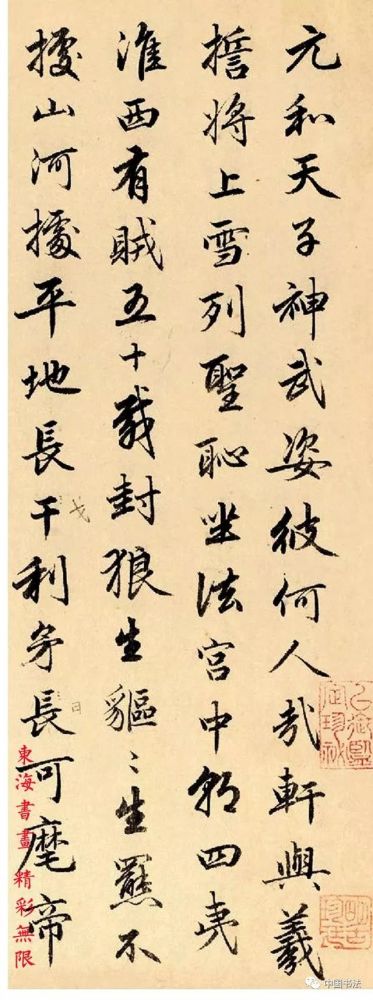 元和天子神武姿彼何人哉軒與羲
誓將上雪列聖恥坐法宮中朝四夷
淮西有賊五十載封狼生貙〻生羆不
據山河據平地長干利矛長可麾帝
戈
日
東海書畫 精彩無限
中国书法